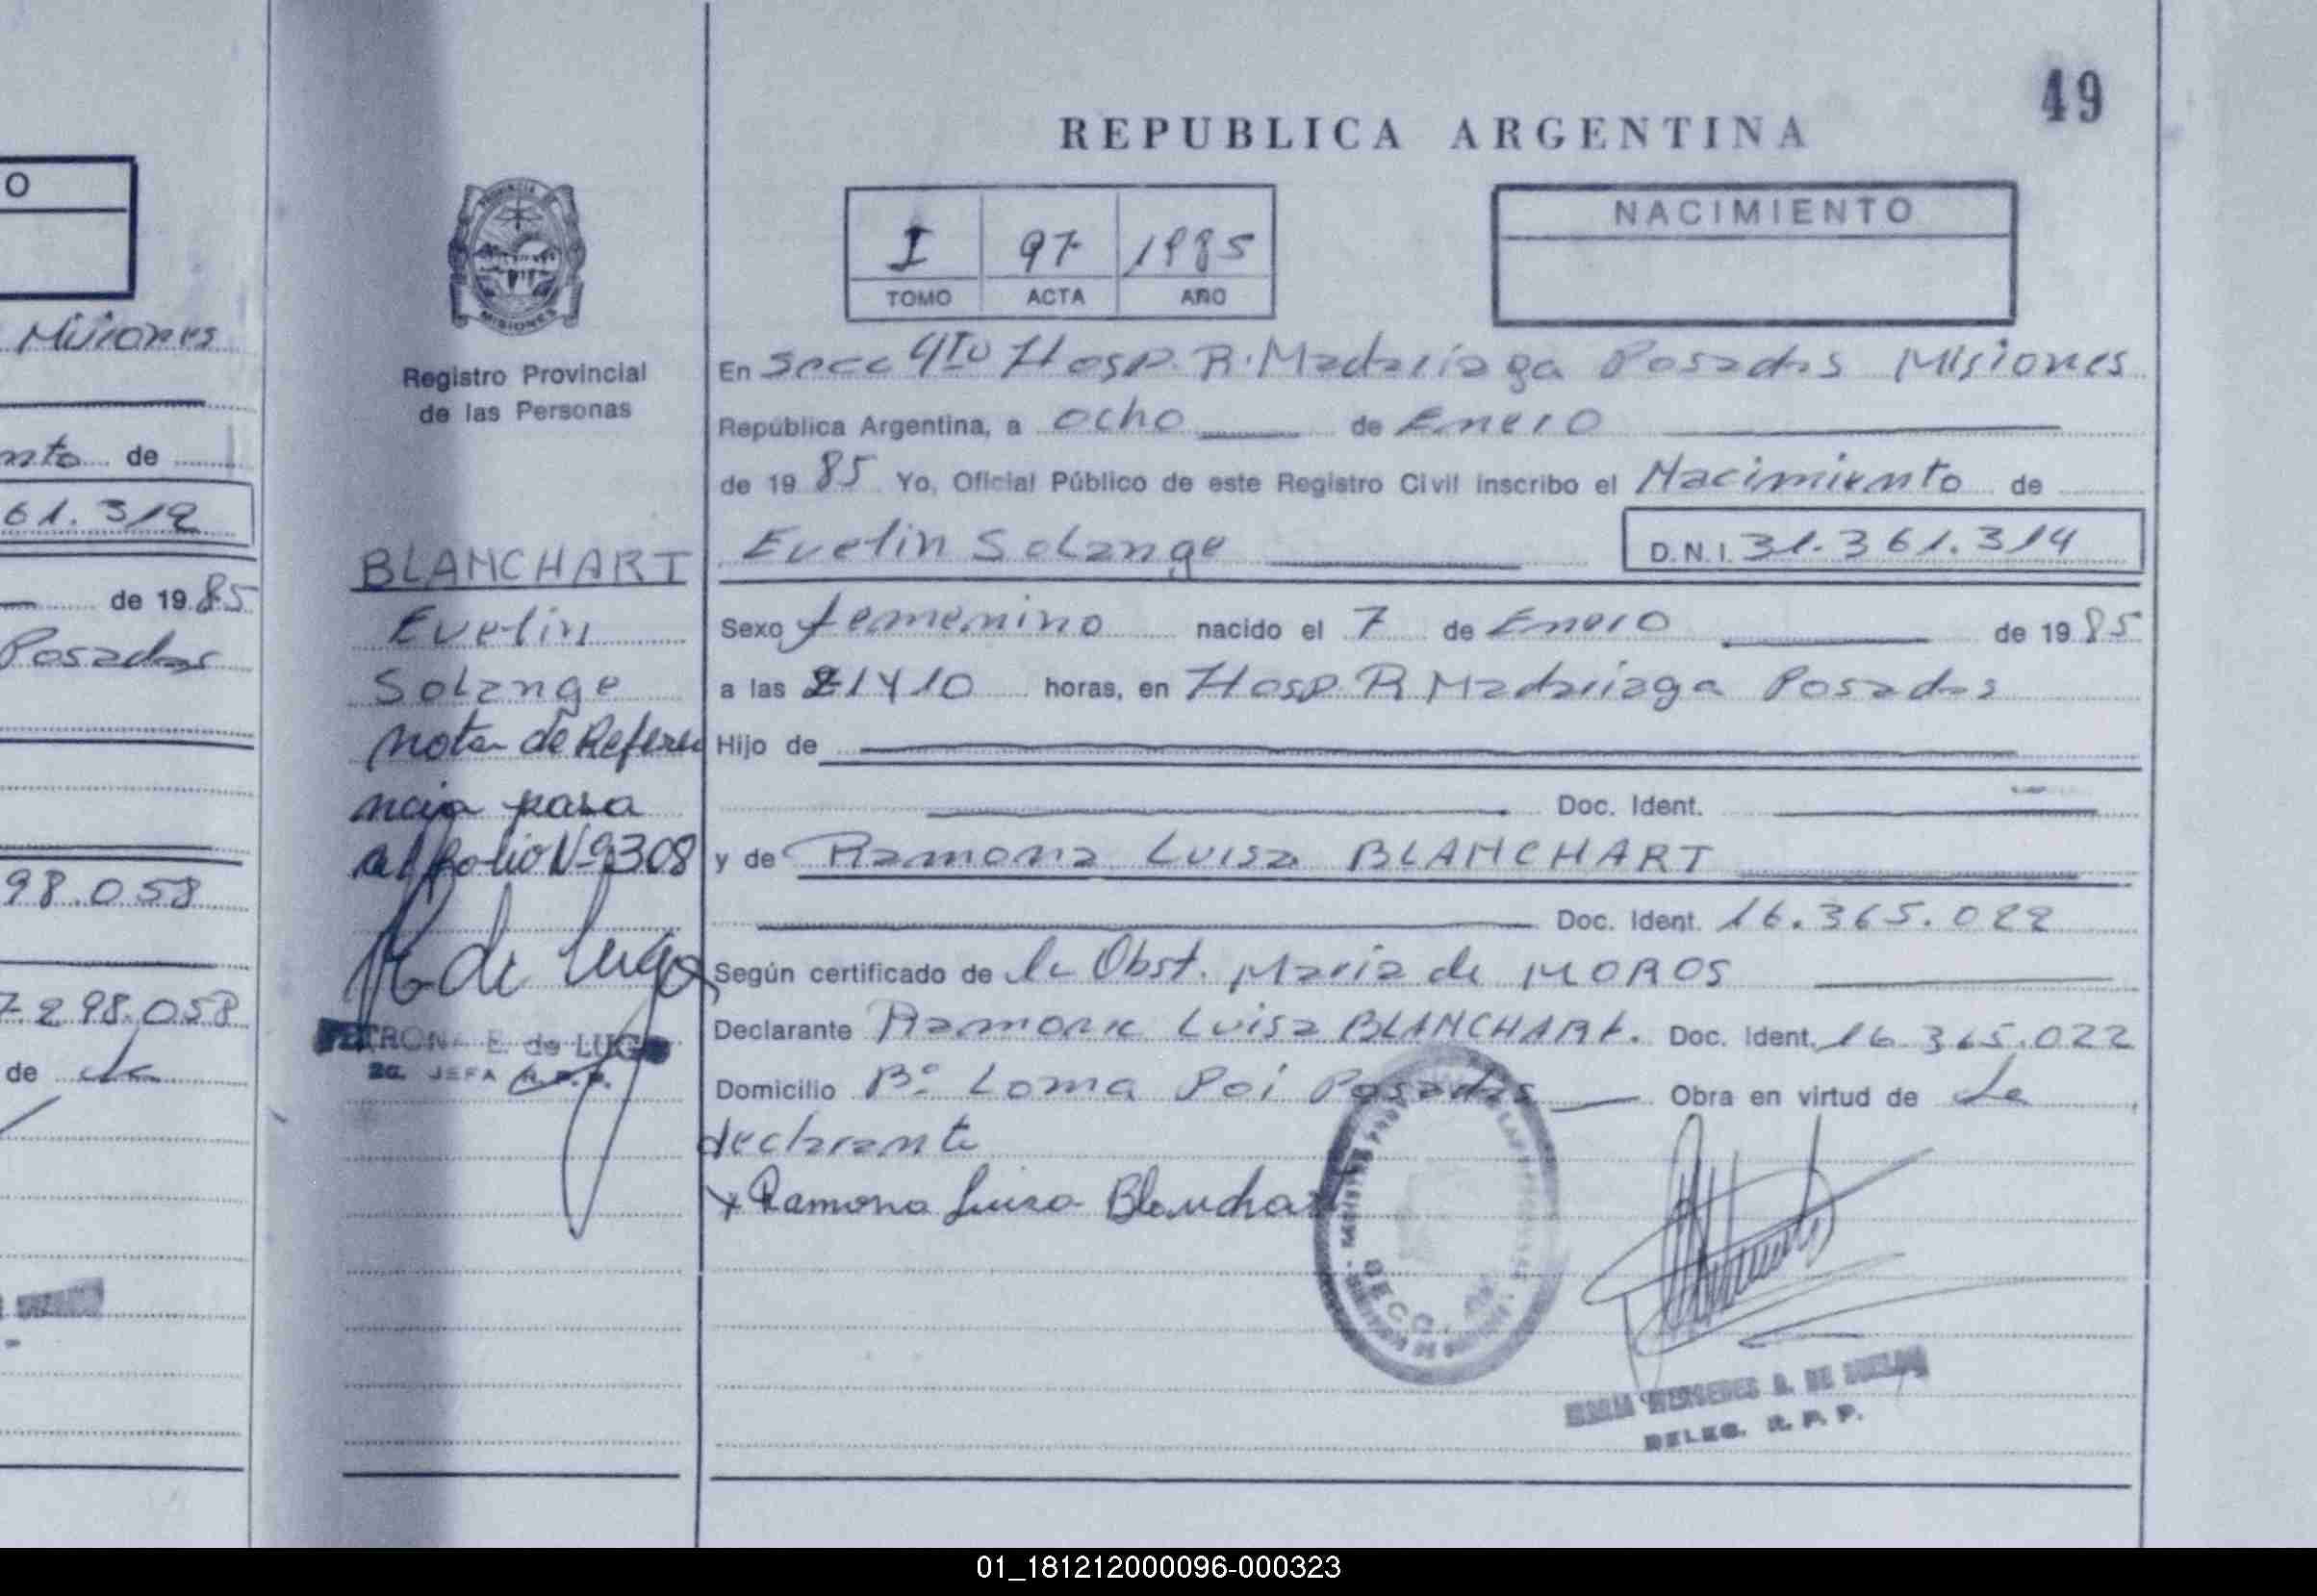 49
REPUBLICA ARGENTINA
O
NACIMIENTO
I 97 1985
TOMO ACTA AÑO
PROVINCIA DE
MISIONES
Misiones
Registro Provincial
de las Personas
En Secc 4TO Hosp. R. Madariaga Posadas Misiones
República Argentina, a ocho de Enero
nto de
de 19 85 Yo, Oficial Público de este Registro Civil inscribo el Nacimiento de
61.312
BLANCHART
Evelin Solange D.N.I. 31.361.314
de 19 85
Evelin
Sexo femenino nacido el 7 de Enero de 19 85
Posadas
Solange
a las 21 y 10 horas, en Hosp. R Madariaga Posadas
nota de Refere
Hijo de
ncia para
Doc. Ident.
al folio Nº 308
y de Ramona Luisa BLANCHART
98.058
Doc. Ident. 16.365.022
P. de Lugo
Según certificado de la Obst. Maria de MOROS
7.298.058
PETRONA E. de LUGO
2a. JEFA R.P.P.
Declarante Ramona Luisa BLANCHART. Doc. Ident. 16.365.022
de la
Domicilio Bº Loma Poi Posadas Obra en virtud de la
declarante
x Ramona Luisa Blanchart
SECC.
MARIA MERCEDES A. DE
DELEG. R. P. P.
01_181212000096-000323